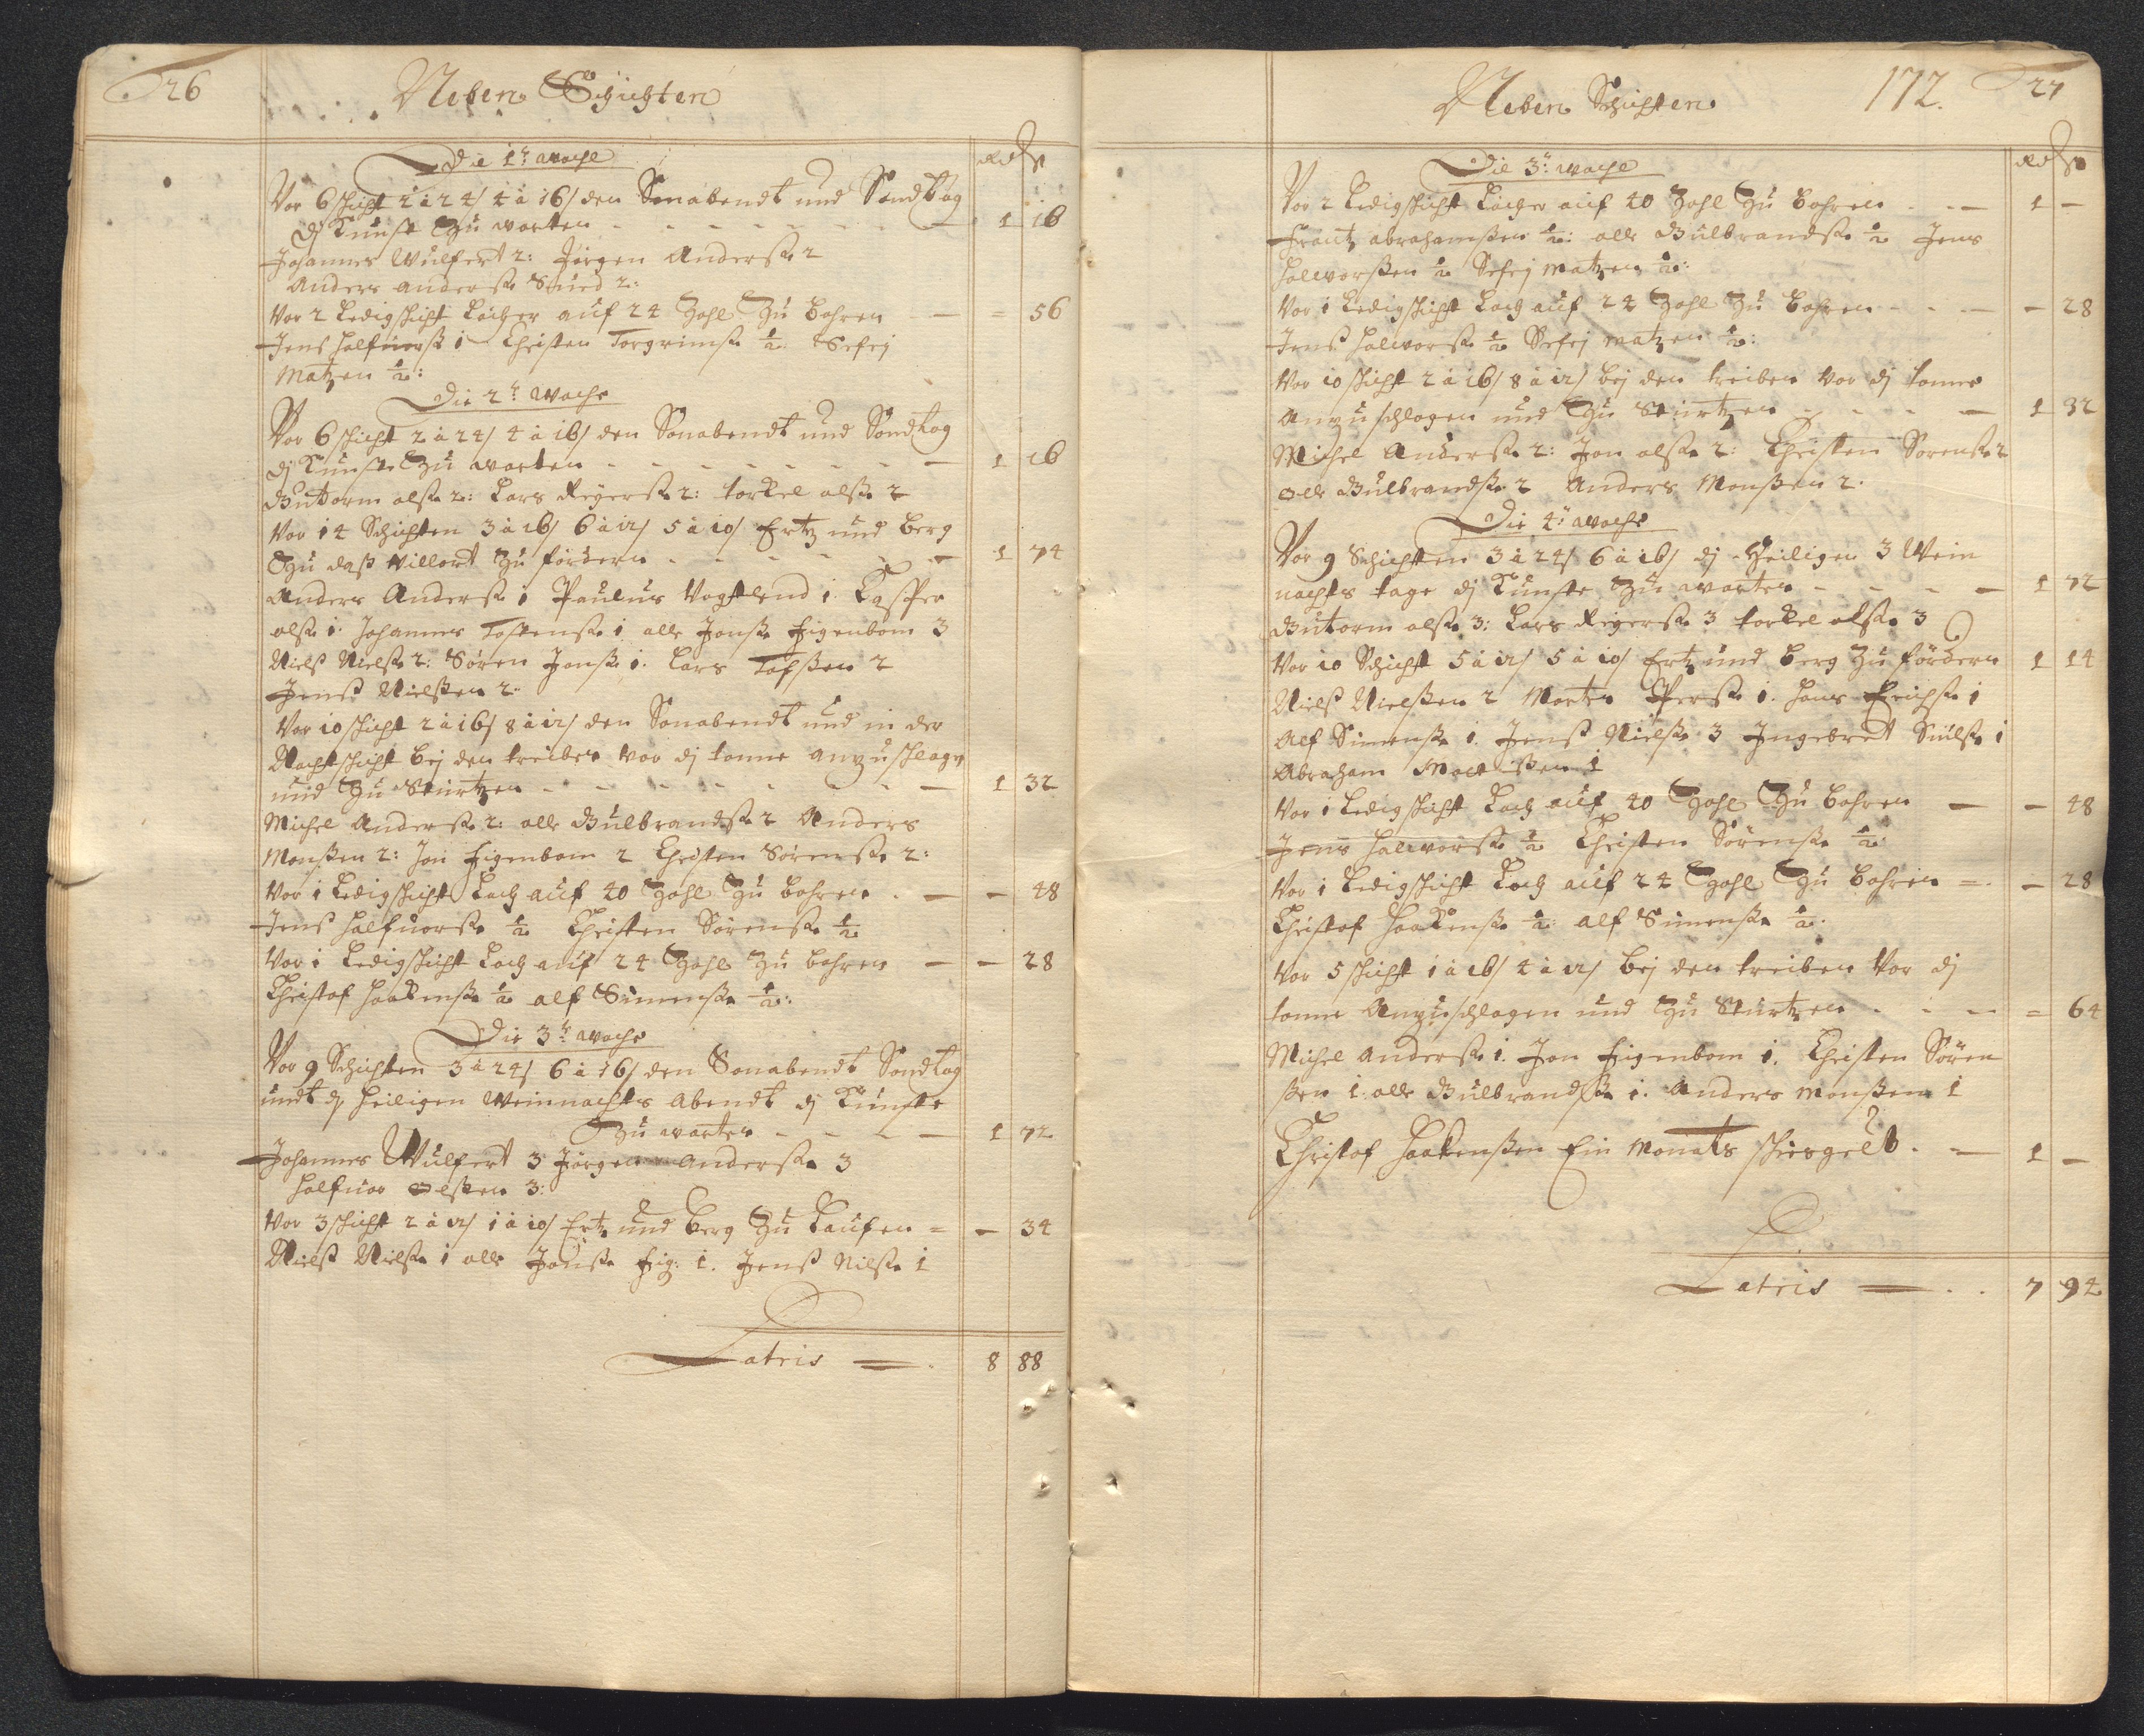 26
Neben Schichten
Rdr ß
Die 1te woche
Vor 6 schicht 2 à 24/ 4 à 16/ den Sonabendt und Sondtag
dj Künste Zu warten - - - - - - 1 16
Johannes Wulfert 2: Jörgen Anderße 2
Anders Anderße Sued 2:
Vor 2 Ledigschicht Löcher auf 24 Zohl Zu bohren — = 56
Jens halfuorß 1 Christen Torgrimße ½: Sefej
Matzen ½:
Die 2te Woche
Vor 6 schicht 2 à 24/ 4 à 16/ den Sonabendt und Sondtag
dj Künste Zu warten - - - - - - 1 16
Gutorm olße 2: Lars Reyerße 2: torkel olße 2
Vor 14 Schichten 3 à 16/ 6 à 12/ 5 à 10/ Ertz und berg
Zu daß Willort Zu fördern - - - - 1 74
Anders Anderße 1 Paulus Vogtlend 1. Casper
olße 1. Johannes Tostenße 1. olle Jonße Eigenbom 3
Nielß Nielße 2: Sören Jonße 1. Lars Tolfßen 2
Jenß Nielßen 2.
Vor 10 schicht 2 à 16/ 8 à 12/ den Sonabendt und in der
Nachtschicht bej den treiben vor dj tonne anzuschlagen
und Zu Stürtzen - - - - - - 1 32
Michel Anderße 2: olle Gulbrandße 2 Anders
Monßen 2: Jon Eigenbom 2 Christen Sörenße 2:
Vor 1 Ledigschicht Loch auf 40 Zohl Zu bohren . — — 48
Jens halfuorße ½ Christen Sörenße ½
Vor 1 Ledigschicht Loch auf 24 Zohl Zu bohren — — 28
Christof haakenße ½ alf Simenße ½:
Die 3te woche
Vor 9 Schichten 3 à 24/ 6 à 16/ den Sonabendt Sondtag
undt dj heiligen Weinnachts Abendt dj Künste
Zu warten - - - — 1 72
Johannes Wulfert 3 Jörgen Anderße 3
halfuor Olßen 3:
Vor 3 schicht 2 à 12/ 1 à 10/ Ertz und berg Zu Laufen = — 34
Nielß Nielße 1 olle Jonße Eig: 1. Jenß Nilße 1
Latris — . 8 88
172. 27
Neben Schichten
Rdr ß
Die 3te woche
Vor 2 Ledigschicht Löcher auf 40 Zohl Zu bohren - — 1 —
Frantz abrahamßen ½: olle Gulbrandße ½ Jens
halworßen ½ Sefej matzen ½:
Vor 1 Ledigschicht Loch auf 24 Zohl Zu bohren - - — — 28
Jenß halworße ½ Sefej matzen ½:
Vor 10 schicht 2 à 16/ 8 à 12/ bej den treiben vor dj tonne
Anzuschlagen und Zu Stürtzen - - - — 1 32
Michel Anderße 2: Jon olße 2: Christen Sorenße 2
olle Gulbrandße 2 Anders Monßen 2.
Die 4te woche
Vor 9 Schichten 3 à 24/ 6 à 16/ dj Heiligen 3 Wein
nachts tage dj Künste Zu warten - - - — 1 72
Gutorm olße 3: Lars Reyerße 3 torkel olße 3
Vor 10 Schicht 5 à 12/ 5 à 10/ Ertz und berg Zu fördern 1 14
Nielß Nielßen 2 Morten Perße 1. hans Erichße 1
Alf Simenße 1. Jenß Nielße 3 Ingebret 1
Abraham 1
Vor 1 Ledigschicht Loch auf 40 Zohl Zu bohren — — 48
Jens halworße ½ Christen Sörenße ½
Vor 1 Ledigschicht Loch auf 24 Zohl Zu bohren =. — 28
Christof haakenße ½: alf Simenße ½.
Vor 5 schicht 1 à 16/ 4 à 12/ bej den treiben Vor dj
tonne Anzuschlagen und Zu Stürtzen . . — = 64
Michel anderße 1. Jon Eigenbom 1. Christen Sören
ßen 1. olle Gulbrandße 1. Anders monßen 1
Christof haakenßen Ein Monats schirgelt . — 1 —
Latris — . . 7 94